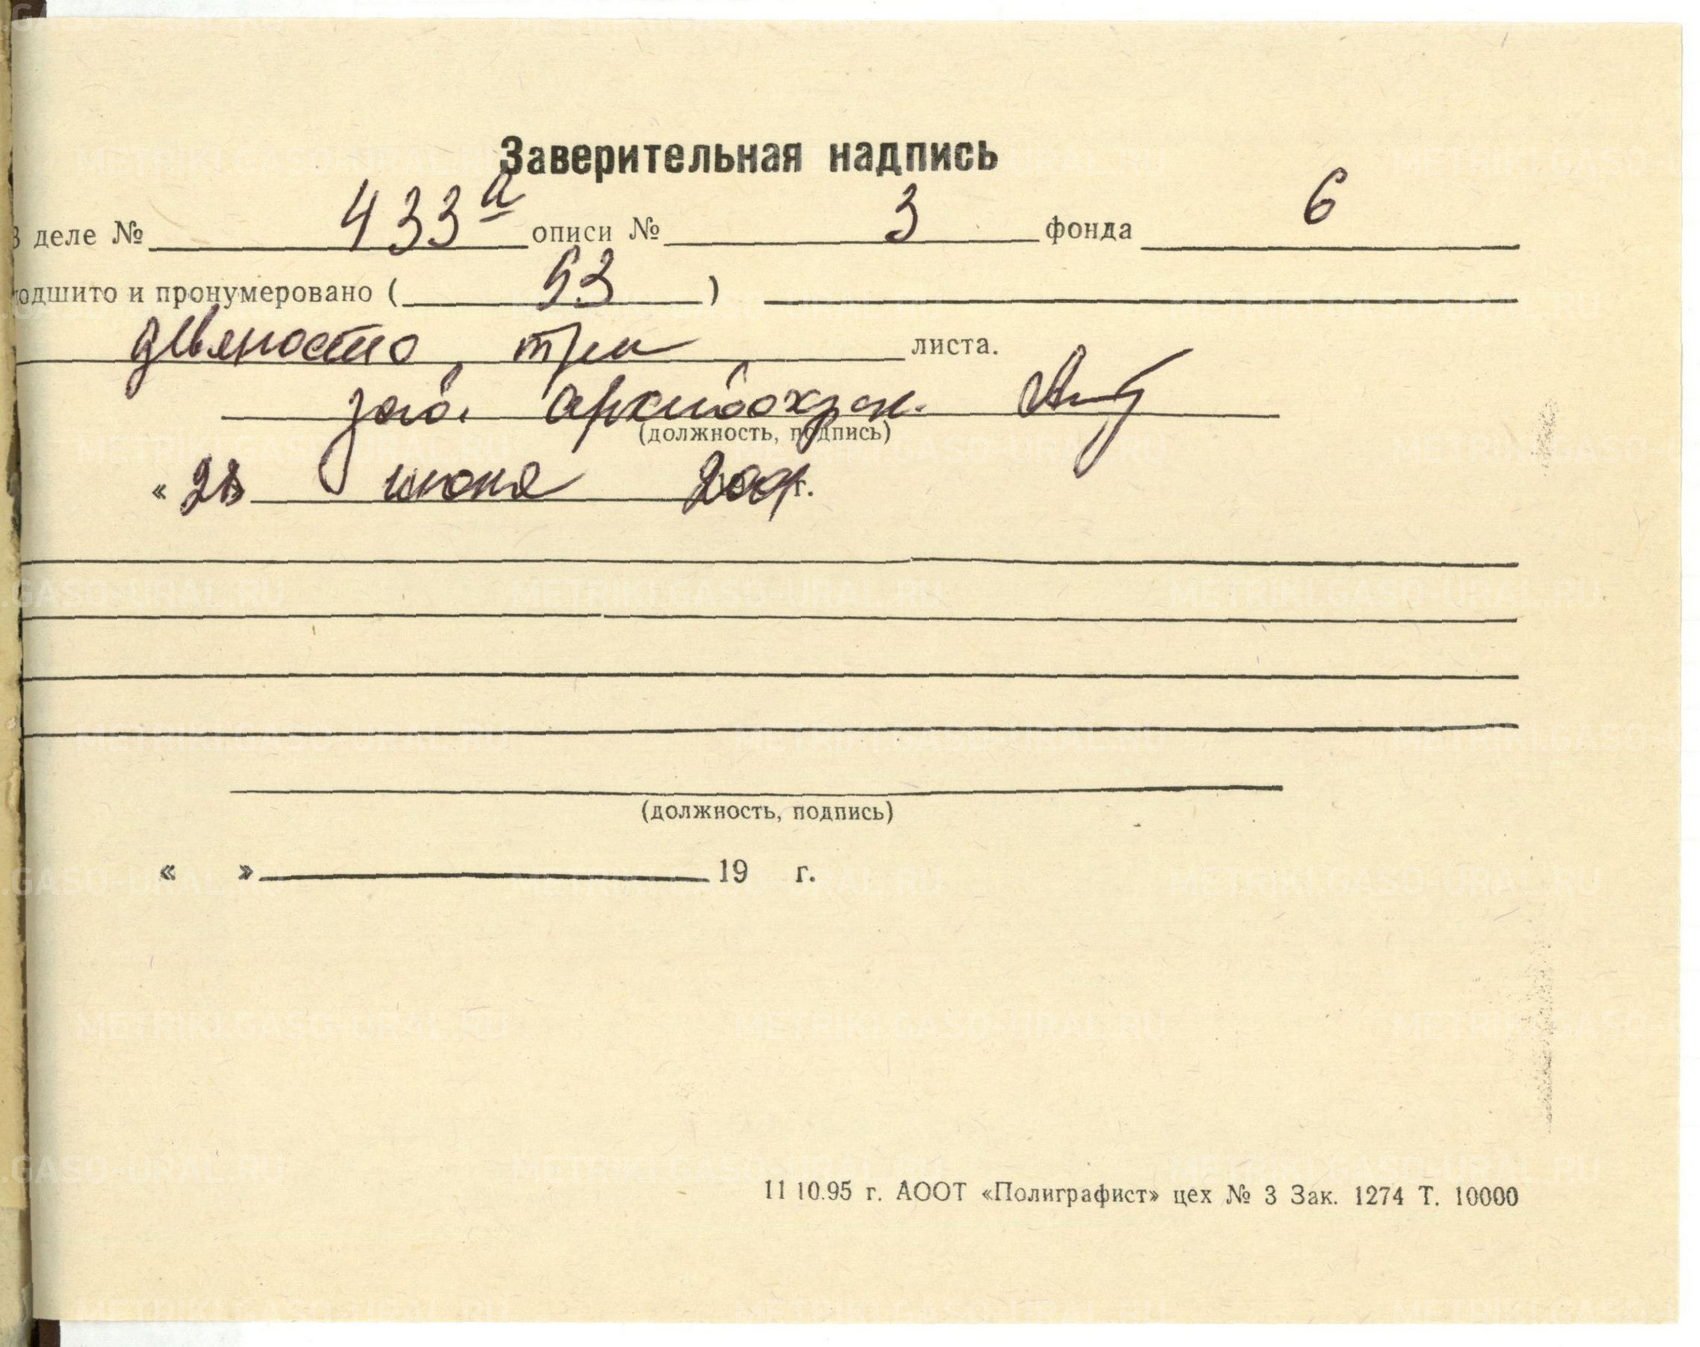 Заверительная надпись
В деле № 433а описи № 3 фонда 6
подшито и пронумеровано ( 93 )
девяносто три листа.
зав. архивохран.
(должность, подпись)
« 28 июня 2001 г.
(должность, подпись)
« » 19 г.
11 10.95 г. АООТ «Полиграфист» цех № 3 Зак. 1274 Т. 10000
METRIKI.GASO-URAL.RU